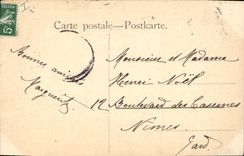 Carte postale — Postkarte.
5
Bonnes amitiés
Marguerite
Monsieur et Madame
Henri Noël
12 Boulevard des Casernes
Nimes
Gard